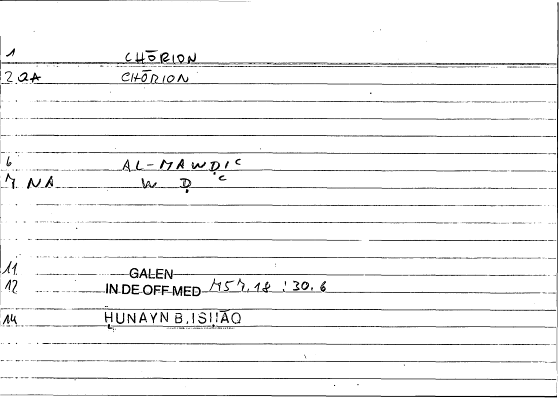 1 CHŌRION
2 QA CHŌRION
6 AL-MAWḌIʿ
7 NA W Ḍ ʿ
11 GALEN
12 IN DE OFF MED 757.18 : 30.6
14 ḤUNAYN B. ISḤĀQ